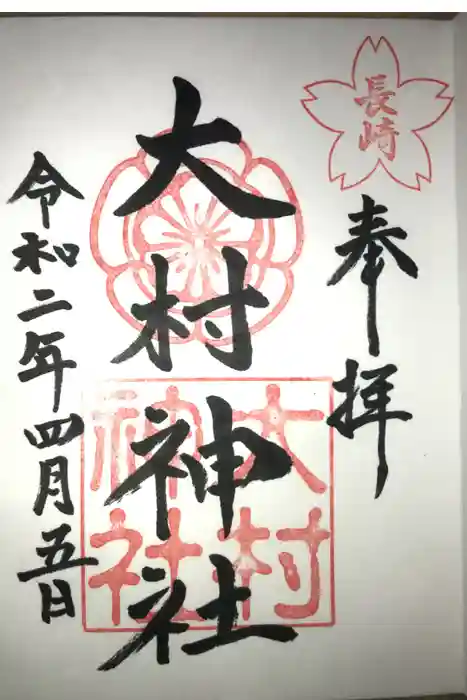 長崎
奉拝
大村神社
大村
神社
令和二年四月五日